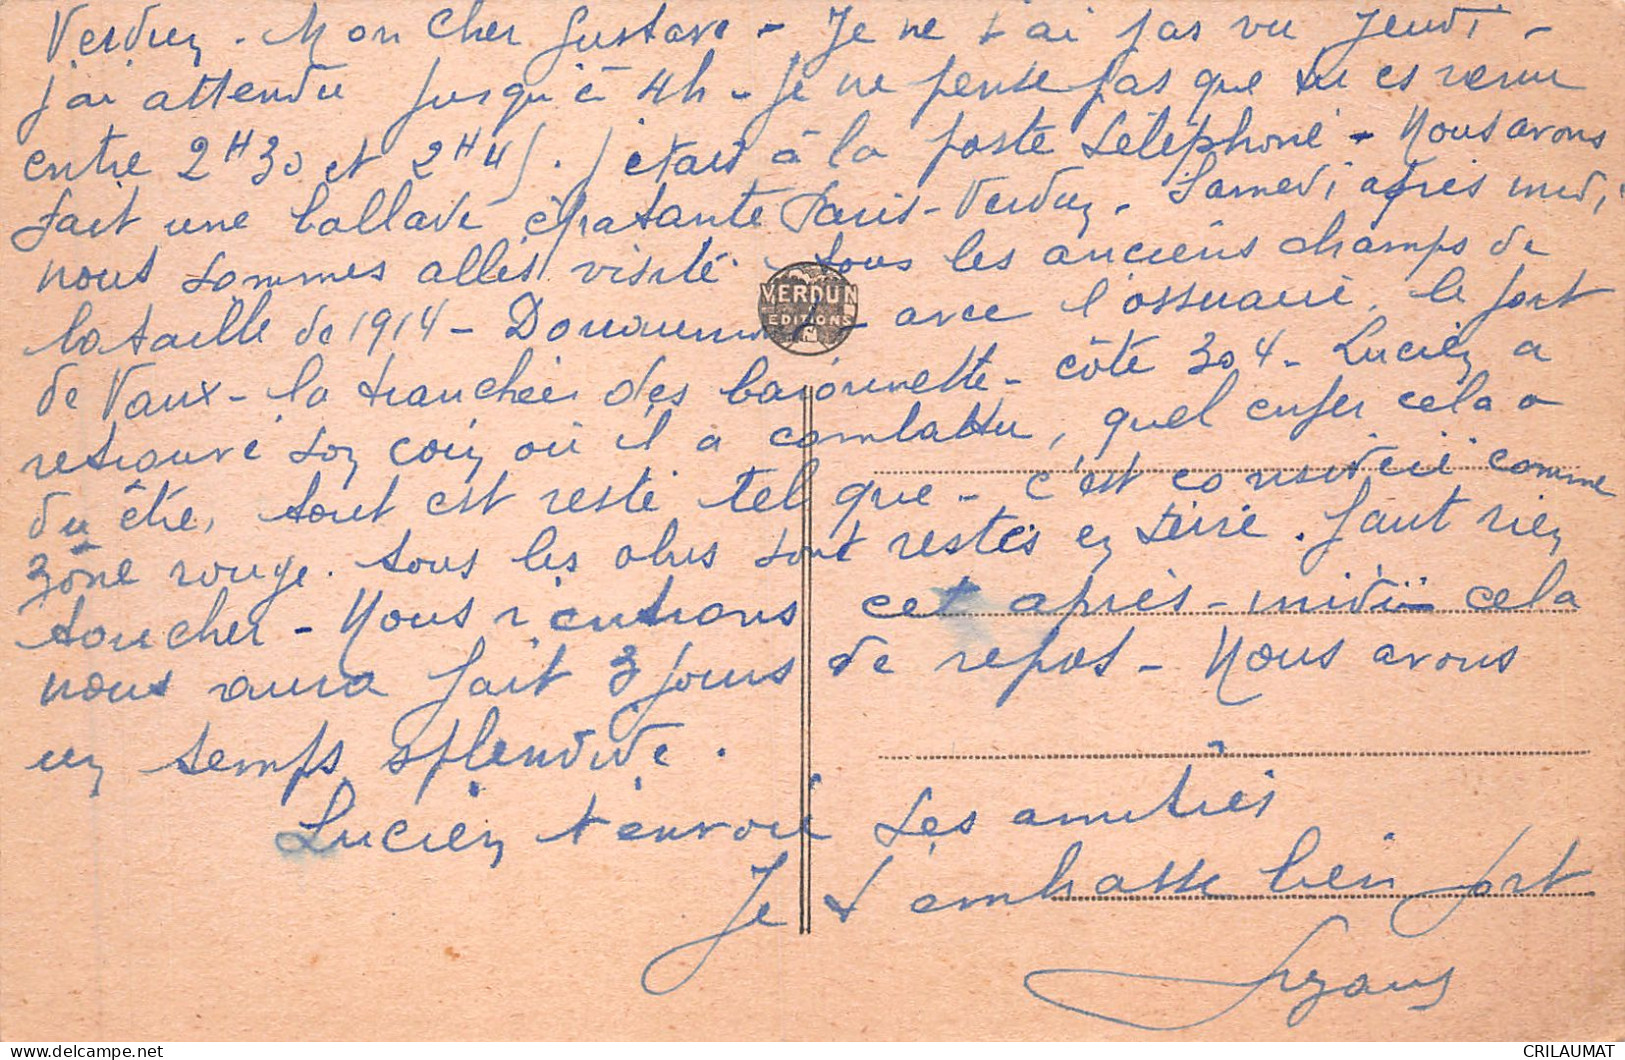 Verdun - Mon cher Gustave - Je ne t'ai pas vu jeudi -
j'ai attendu jusqu'à 4h - je ne pense pas que tu es venu
entre 2H30 et 2H45. j'étais à la poste téléphoné - Nous avons
fait une ballade épatante Paris-Verdun. Samedi après midi,
nous sommes allés visité tous les anciens champs de
bataille de 1914 - Douaumont - avec l'ossuaire, le fort
de Vaux - la tranchée des baïonnette - côte 304 - Lucien a
retrouvé son coin où il a combattu, quel enfer cela a
du être, tout est resté tel que - c'est considéré comme
zône rouge. tous les obus sont restés en terre. faut rien
toucher - Nous rentrons cet après-midi - cela
nous aura fait 3 jours de repos - Nous avons
un temps splendide.
Lucien t'envoie ses amitiés
Je t'embrasse bien fort
Suzanne
VERDUN
EDITIONS
CRILAUMAT